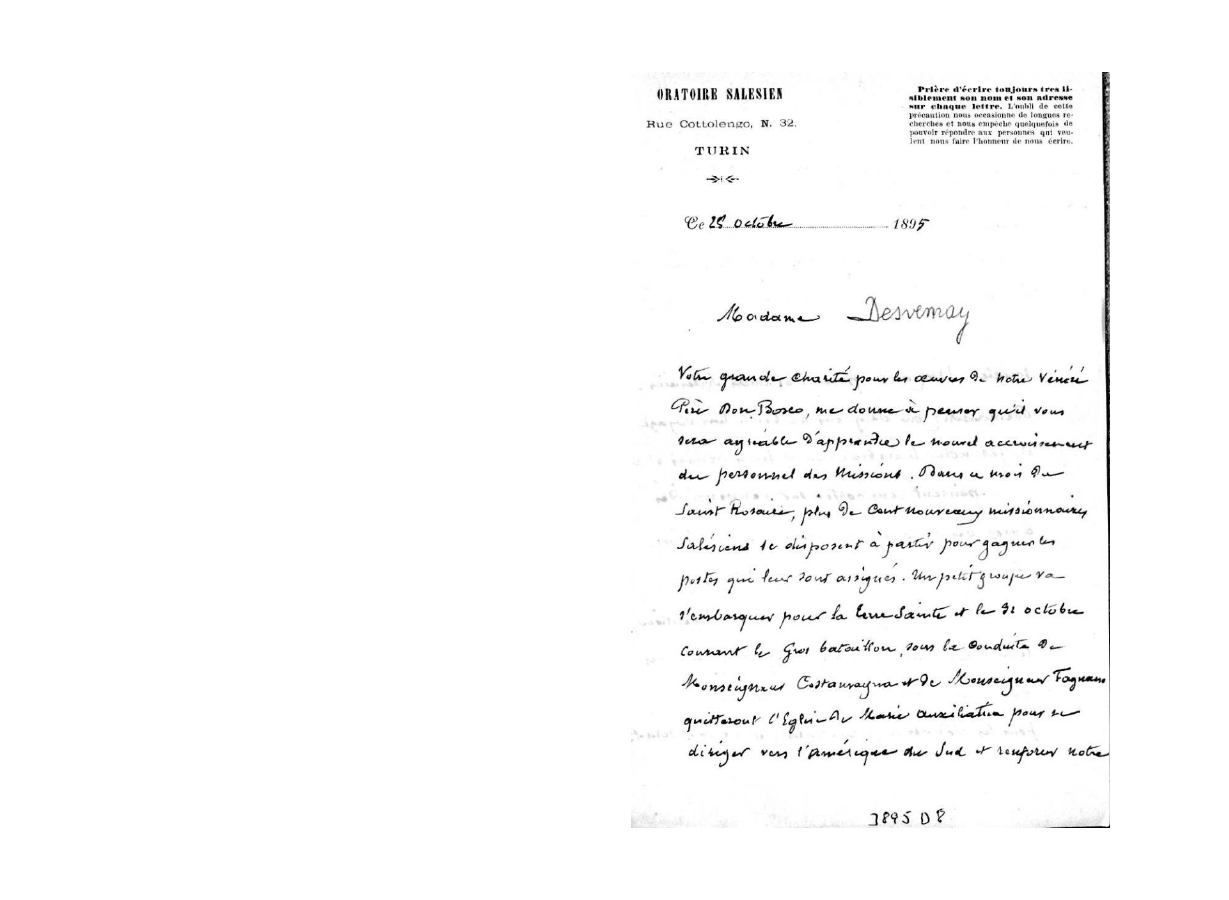 ORATOIRE SALESIEN
Rue Cottolengo, N. 32.
TURIN
Prière d'écrire toujours tres li-
siblement son nom et son adresse
sur chaque lettre. L'oubli de cette
précaution nous occasionne de longues re-
cherches et nous empêche quelquefois de
pouvoir répondre aux personnes qui veu-
lent nous faire l'honneur de nous écrire.
Ce octobre 1895
Madame Desvernay
Votre grande charité pour les œuvres de notre Vénéré
Père Don Bosco, me donne à penser qu'il vous
sera agréable d'apprendre le nouvel accroissement
du personnel des Missions. Dans ce mois du
Saint Rosaire, plus de Cent nouveaux missionnaires
Salésiens se disposent à partir pour gagner les
postes qui leur sont assignés. Un petit groupe va
s'embarquer pour la Terre Sainte et le 31 octobre
courant le Gros bataillon, sous la conduite de
Monseigneur Costamagna et de Monseigneur Fagnano
quitteront l'Eglise de Marie auxiliatrice pour se
diriger vers l'amérique du Sud et renforcer notre
3895 D 8